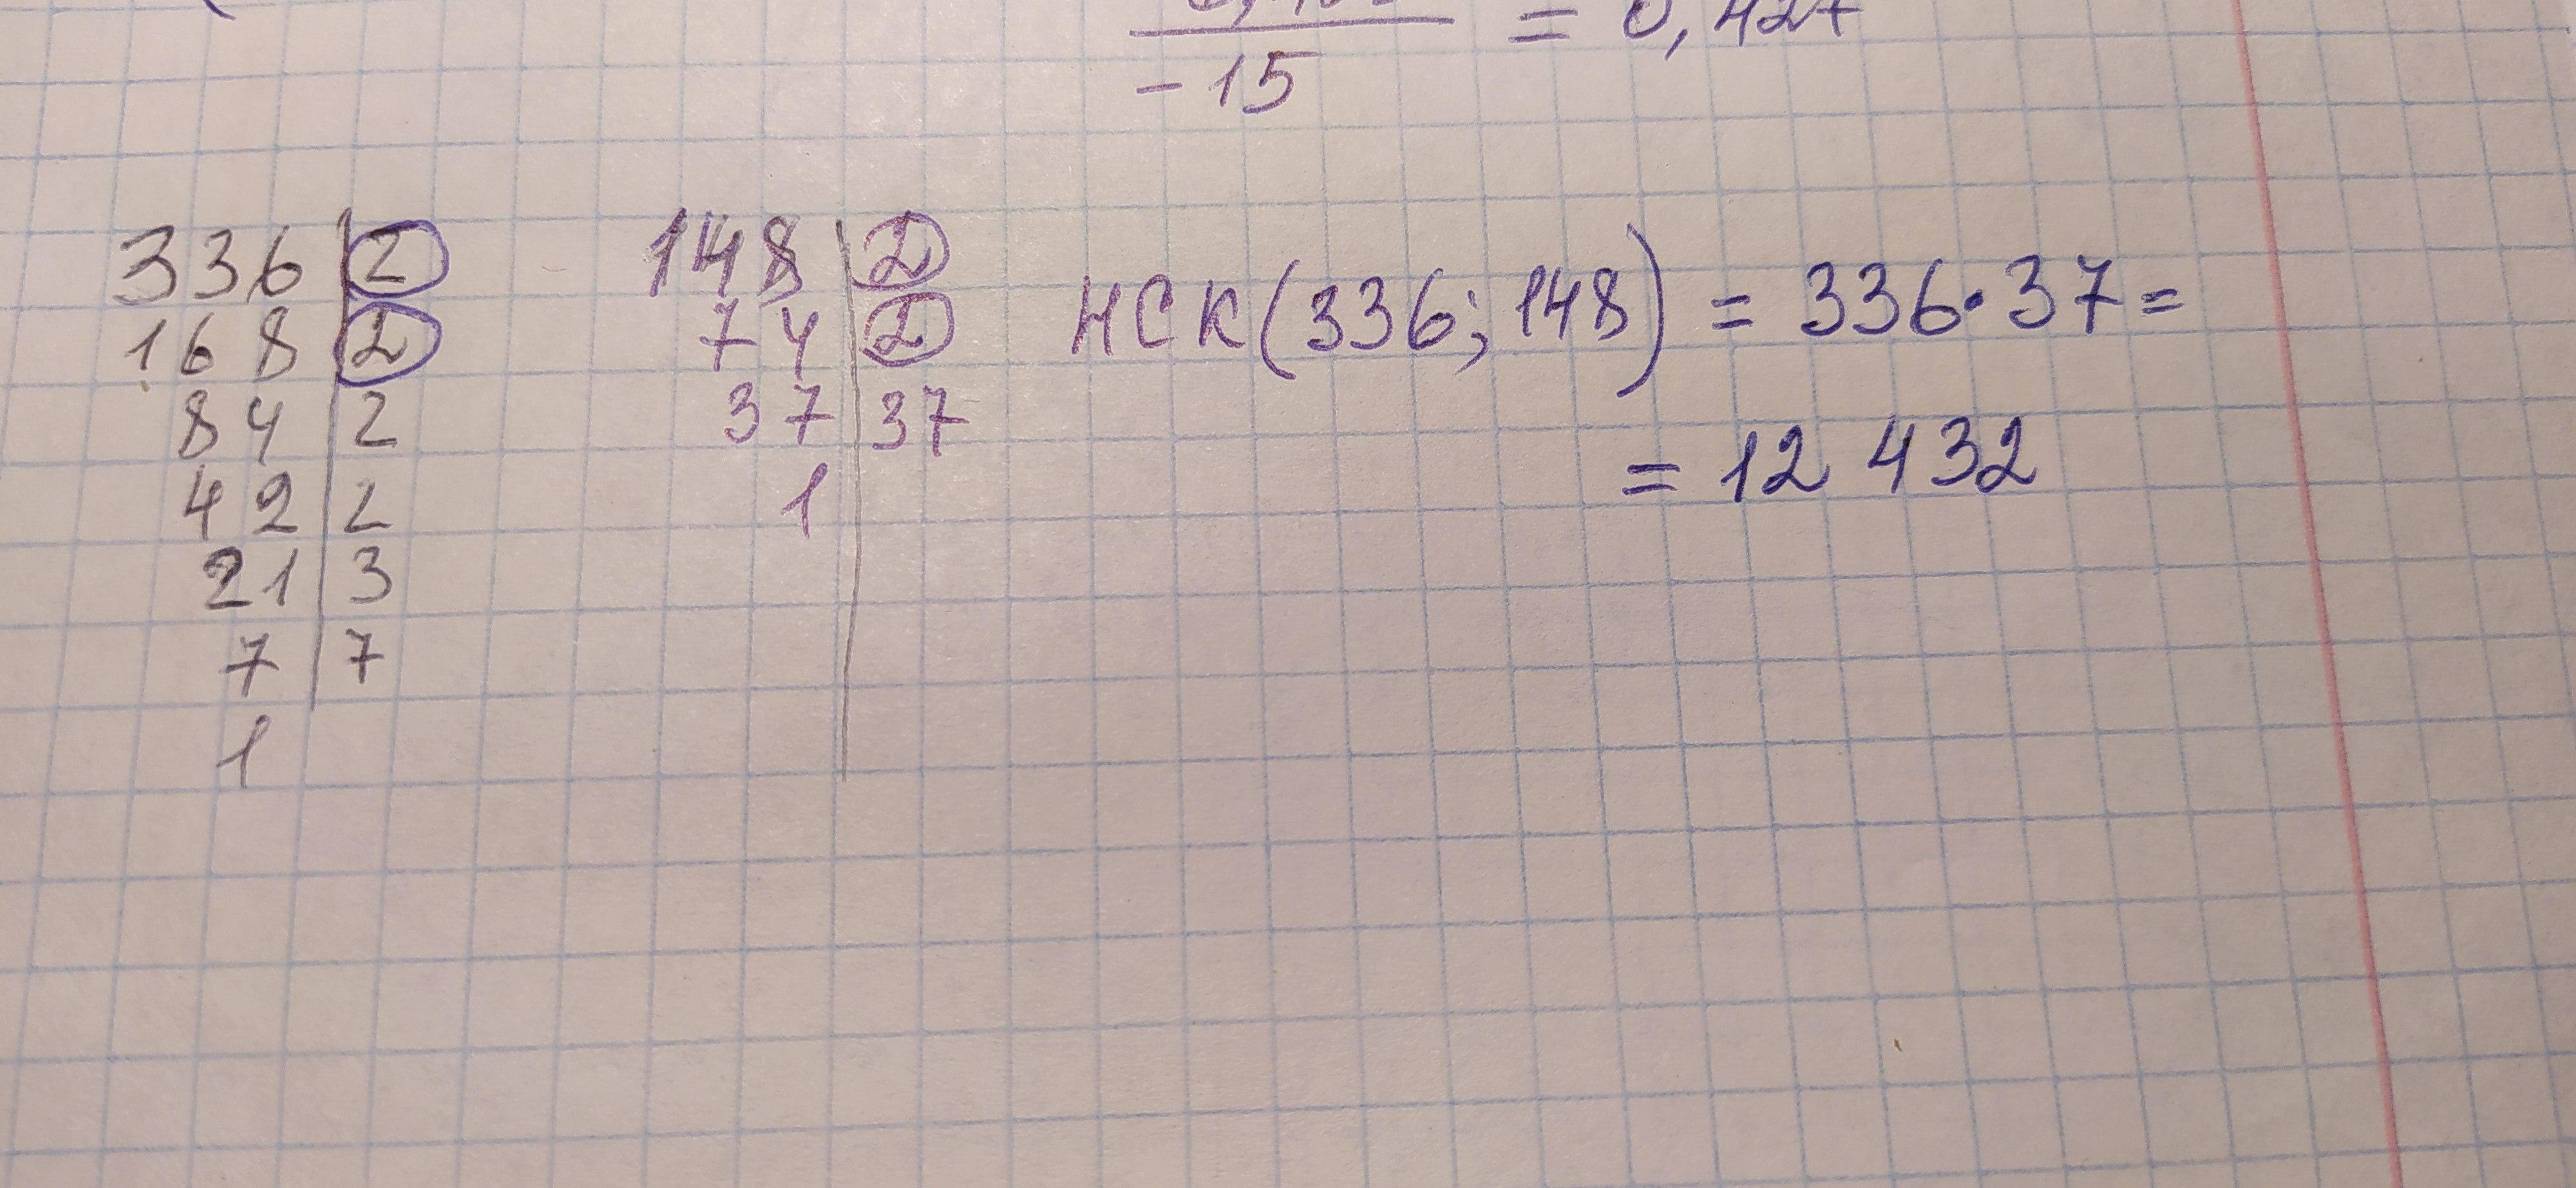 = 0,427
-15
336 | 2
168 | 2
84 | 2
42 | 2
21 | 3
7 | 7
1
148 | 2
74 | 2
37 | 37
1
НСК(336; 148) = 336·37 =
= 12 432